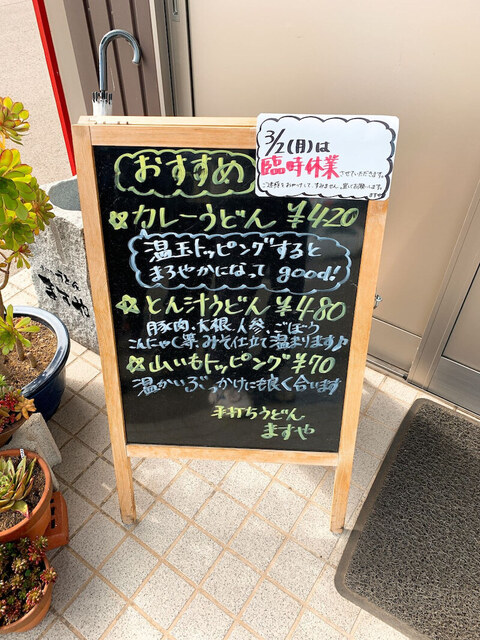 3/2(月)は
臨時休業
させていただきます。
ご迷惑をおかけして、すみません。宜しくお願いします。
ますや
おすすめ
☆カレーうどん ¥420
温玉トッピングすると
まろやかになって good!
☆とん汁うどん ¥480
豚肉、大根、人参、ごぼう
こんにゃく等、みそ仕立て温まります♪
☆山いもトッピング¥70
温かいぶっかけにも良く合います
手打ちうどん
ますや